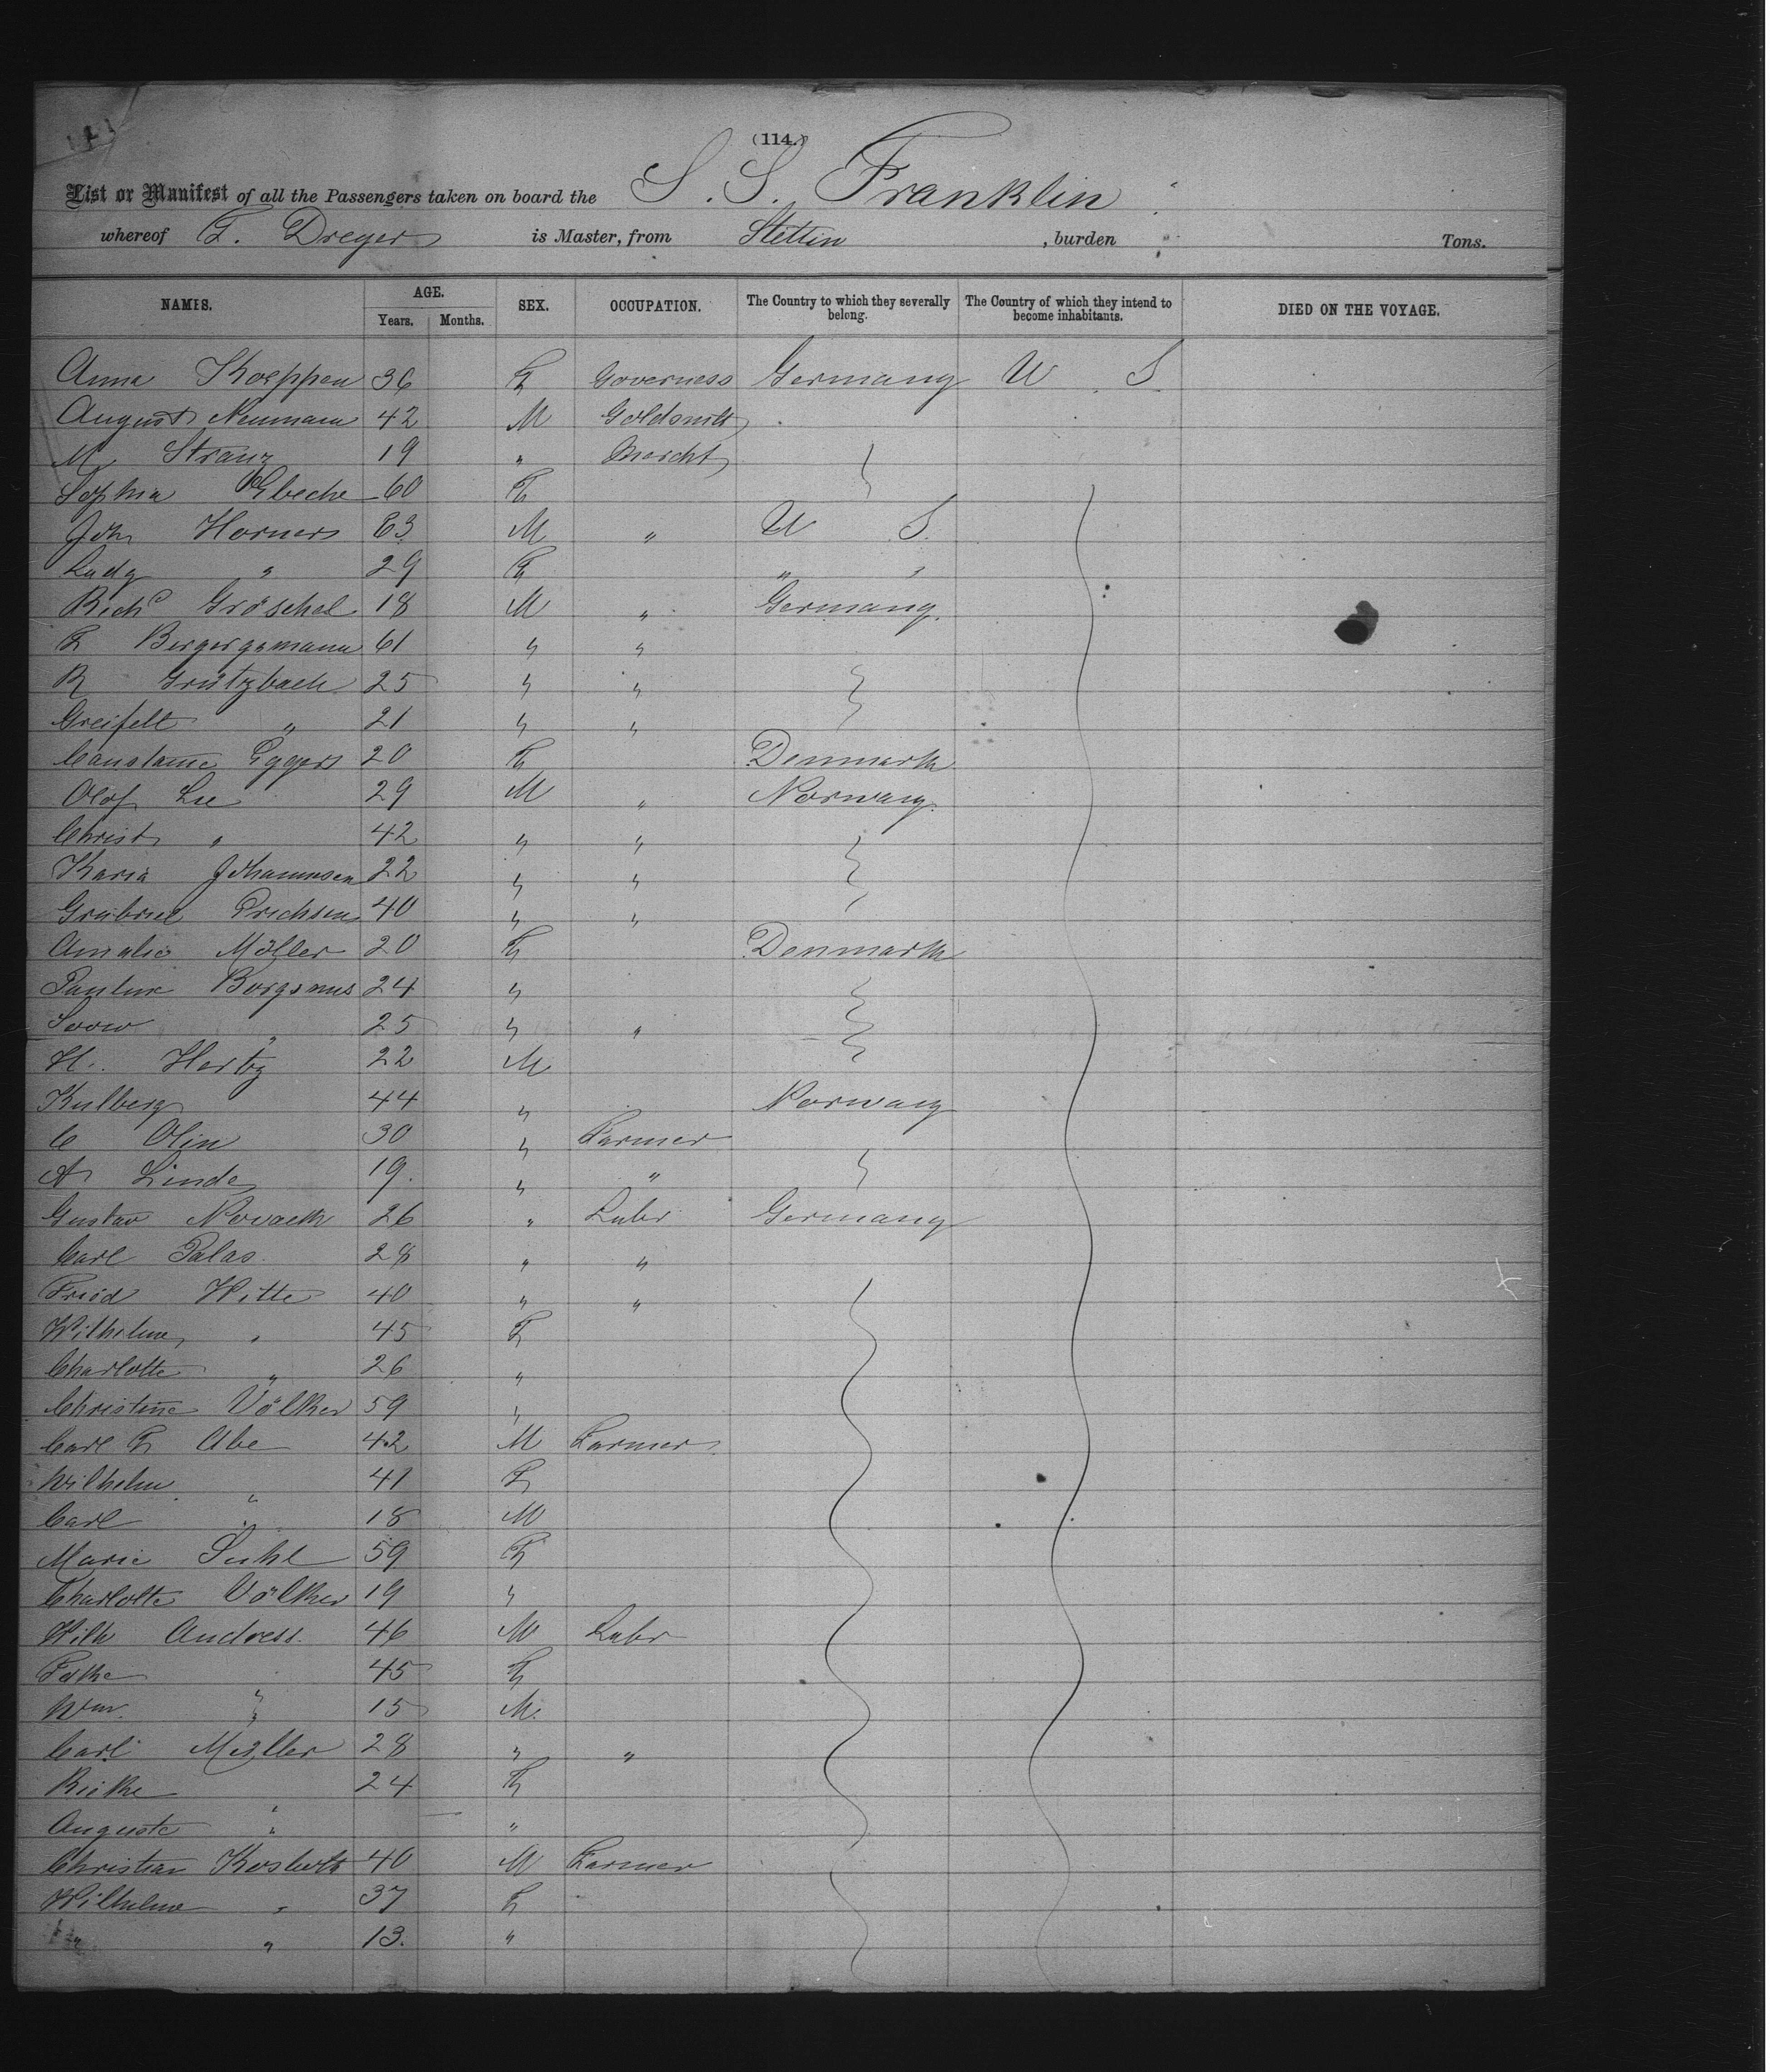 (114.)
List or Manifest of all the Passengers taken on board the S. S. Franklin
whereof F. Dreyer is Master, from Stettin , burden Tons.
NAMES. AGE. Years. Months. SEX. OCCUPATION. The Country to which they severally belong. The Country of which they intend to become inhabitants. DIED ON THE VOYAGE.
Anna Koeppen 36 F Governess Germany U S
August Neumann 42 M Goldsmith
M Stranz 19 " Mercht
Sophia 60 F
John Horners 63 M " U S.
Lady " 29 F " "
Richd Gröschel 18 M " Germany.
F Bergergmann 61 " "
R Grützbach 25 " "
Greifelt " 21 " "
Constanne Eggers 20 F Denmark
Olof Lee 29 M " Norway.
Christ " 42 " "
Karia Johannsen 22 " "
Grabriel Erichsen 40 " "
Amalie Möller 20 F Denmark
Pauline Borgsmus 24 "
Soow " 25 " "
H. Hertz 22 M
Kulberg 44 " Norway
C Olin 30 " Farmer
A Linde 19. " "
Gustav Novack 26 " Labr Germany
Carl Palas 28 " "
Fried Witte 40 " "
Wilhelme " 45 F
Charlotte " 26 "
Christine Völker 59 "
Carl F Abe 42 M Farmer
Wilhelm " 41 F
Carl " 18 M
Marie Suhl 59 F
Charlotte Völker 19 "
Wilh Andress. 46 M Labr
Folke " 45 F
Wm. " 15 M.
Carl Müller 28 " "
Rieke " 24 F
Auguste " "
Christian 40 M Farmer
Wilhelme " 37 F
" " 13. "